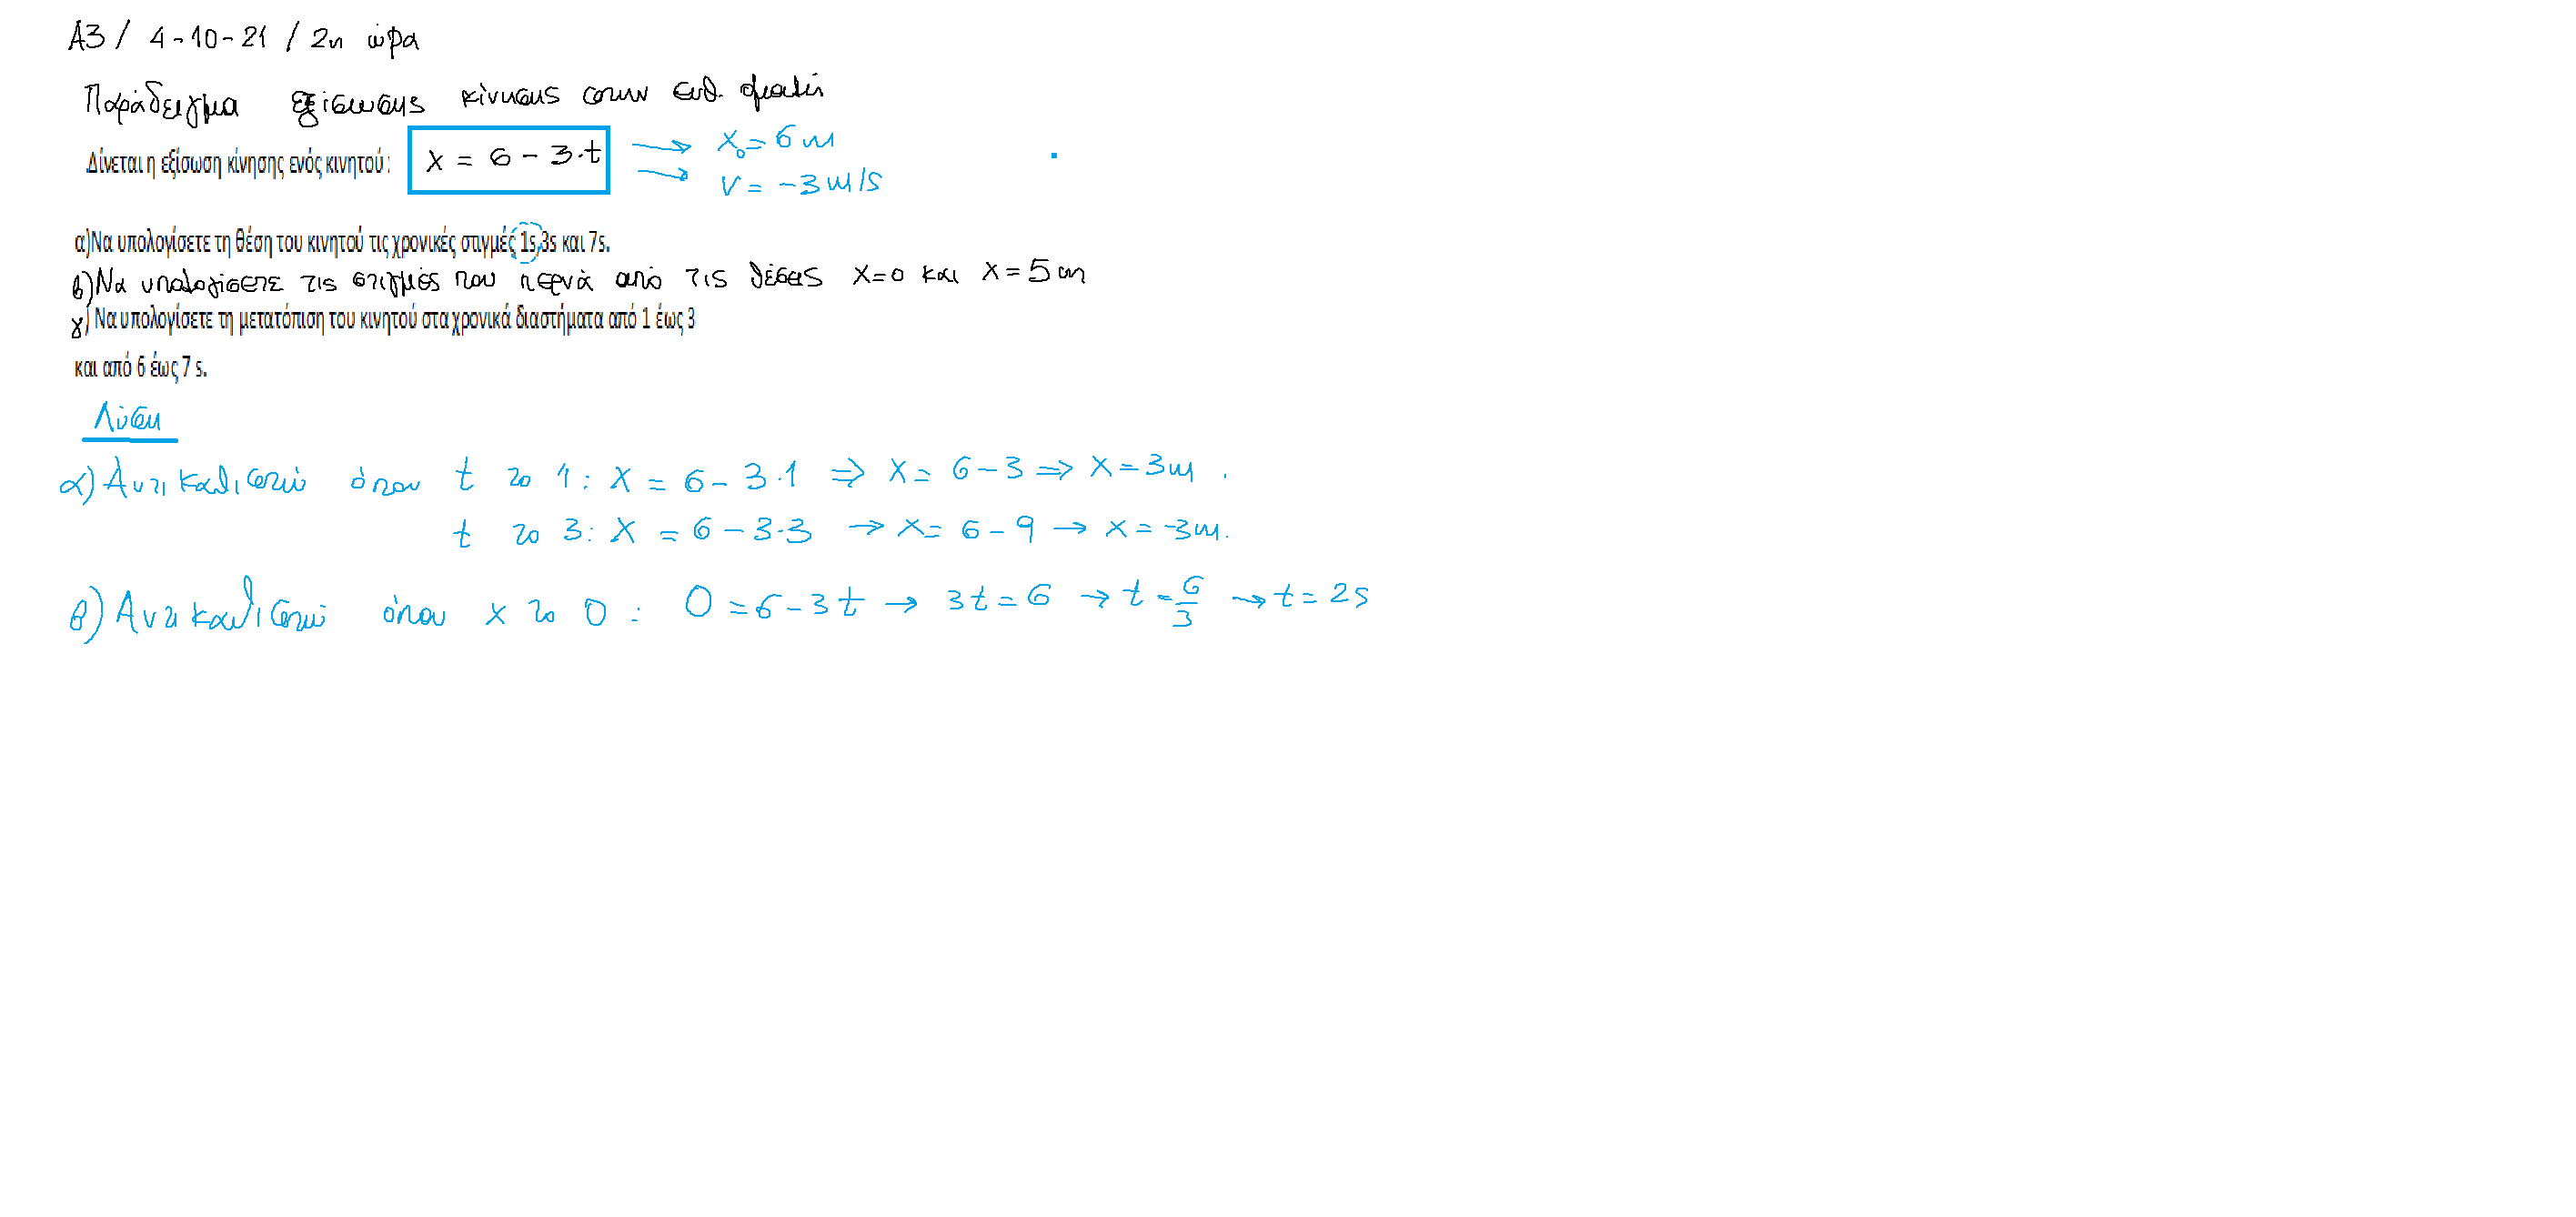 Α3 / 4-10-21 / 2η ώρα
Παράδειγμα εξίσωσης κίνησης στην ευθ. ομαλή
Δίνεται η εξίσωση κίνησης ενός κινητού : x = 6 - 3·t → x₀ = 6 m
→ v = -3 m/s
α)Να υπολογίσετε τη θέση του κινητού τις χρονικές στιγμές 1s,3s και 7s.
β) Να υπολογίσετε τις στιγμές που περνά από τις θέσεις x=0 και x = 5 m
γ) Να υπολογίσετε τη μετατόπιση του κινητού στα χρονικά διαστήματα από 1 έως 3
και από 6 έως 7 s.
Λύση
α) Αντικαθιστώ όπου t το 1 : x = 6 - 3·1 ⇒ x = 6 - 3 ⇒ x = 3 m .
t το 3 : x = 6 - 3·3 → x = 6 - 9 → x = -3 m.
β) Αντικαθιστώ όπου x το 0 : 0 = 6 - 3t → 3t = 6 → t = 6/3 → t = 2s